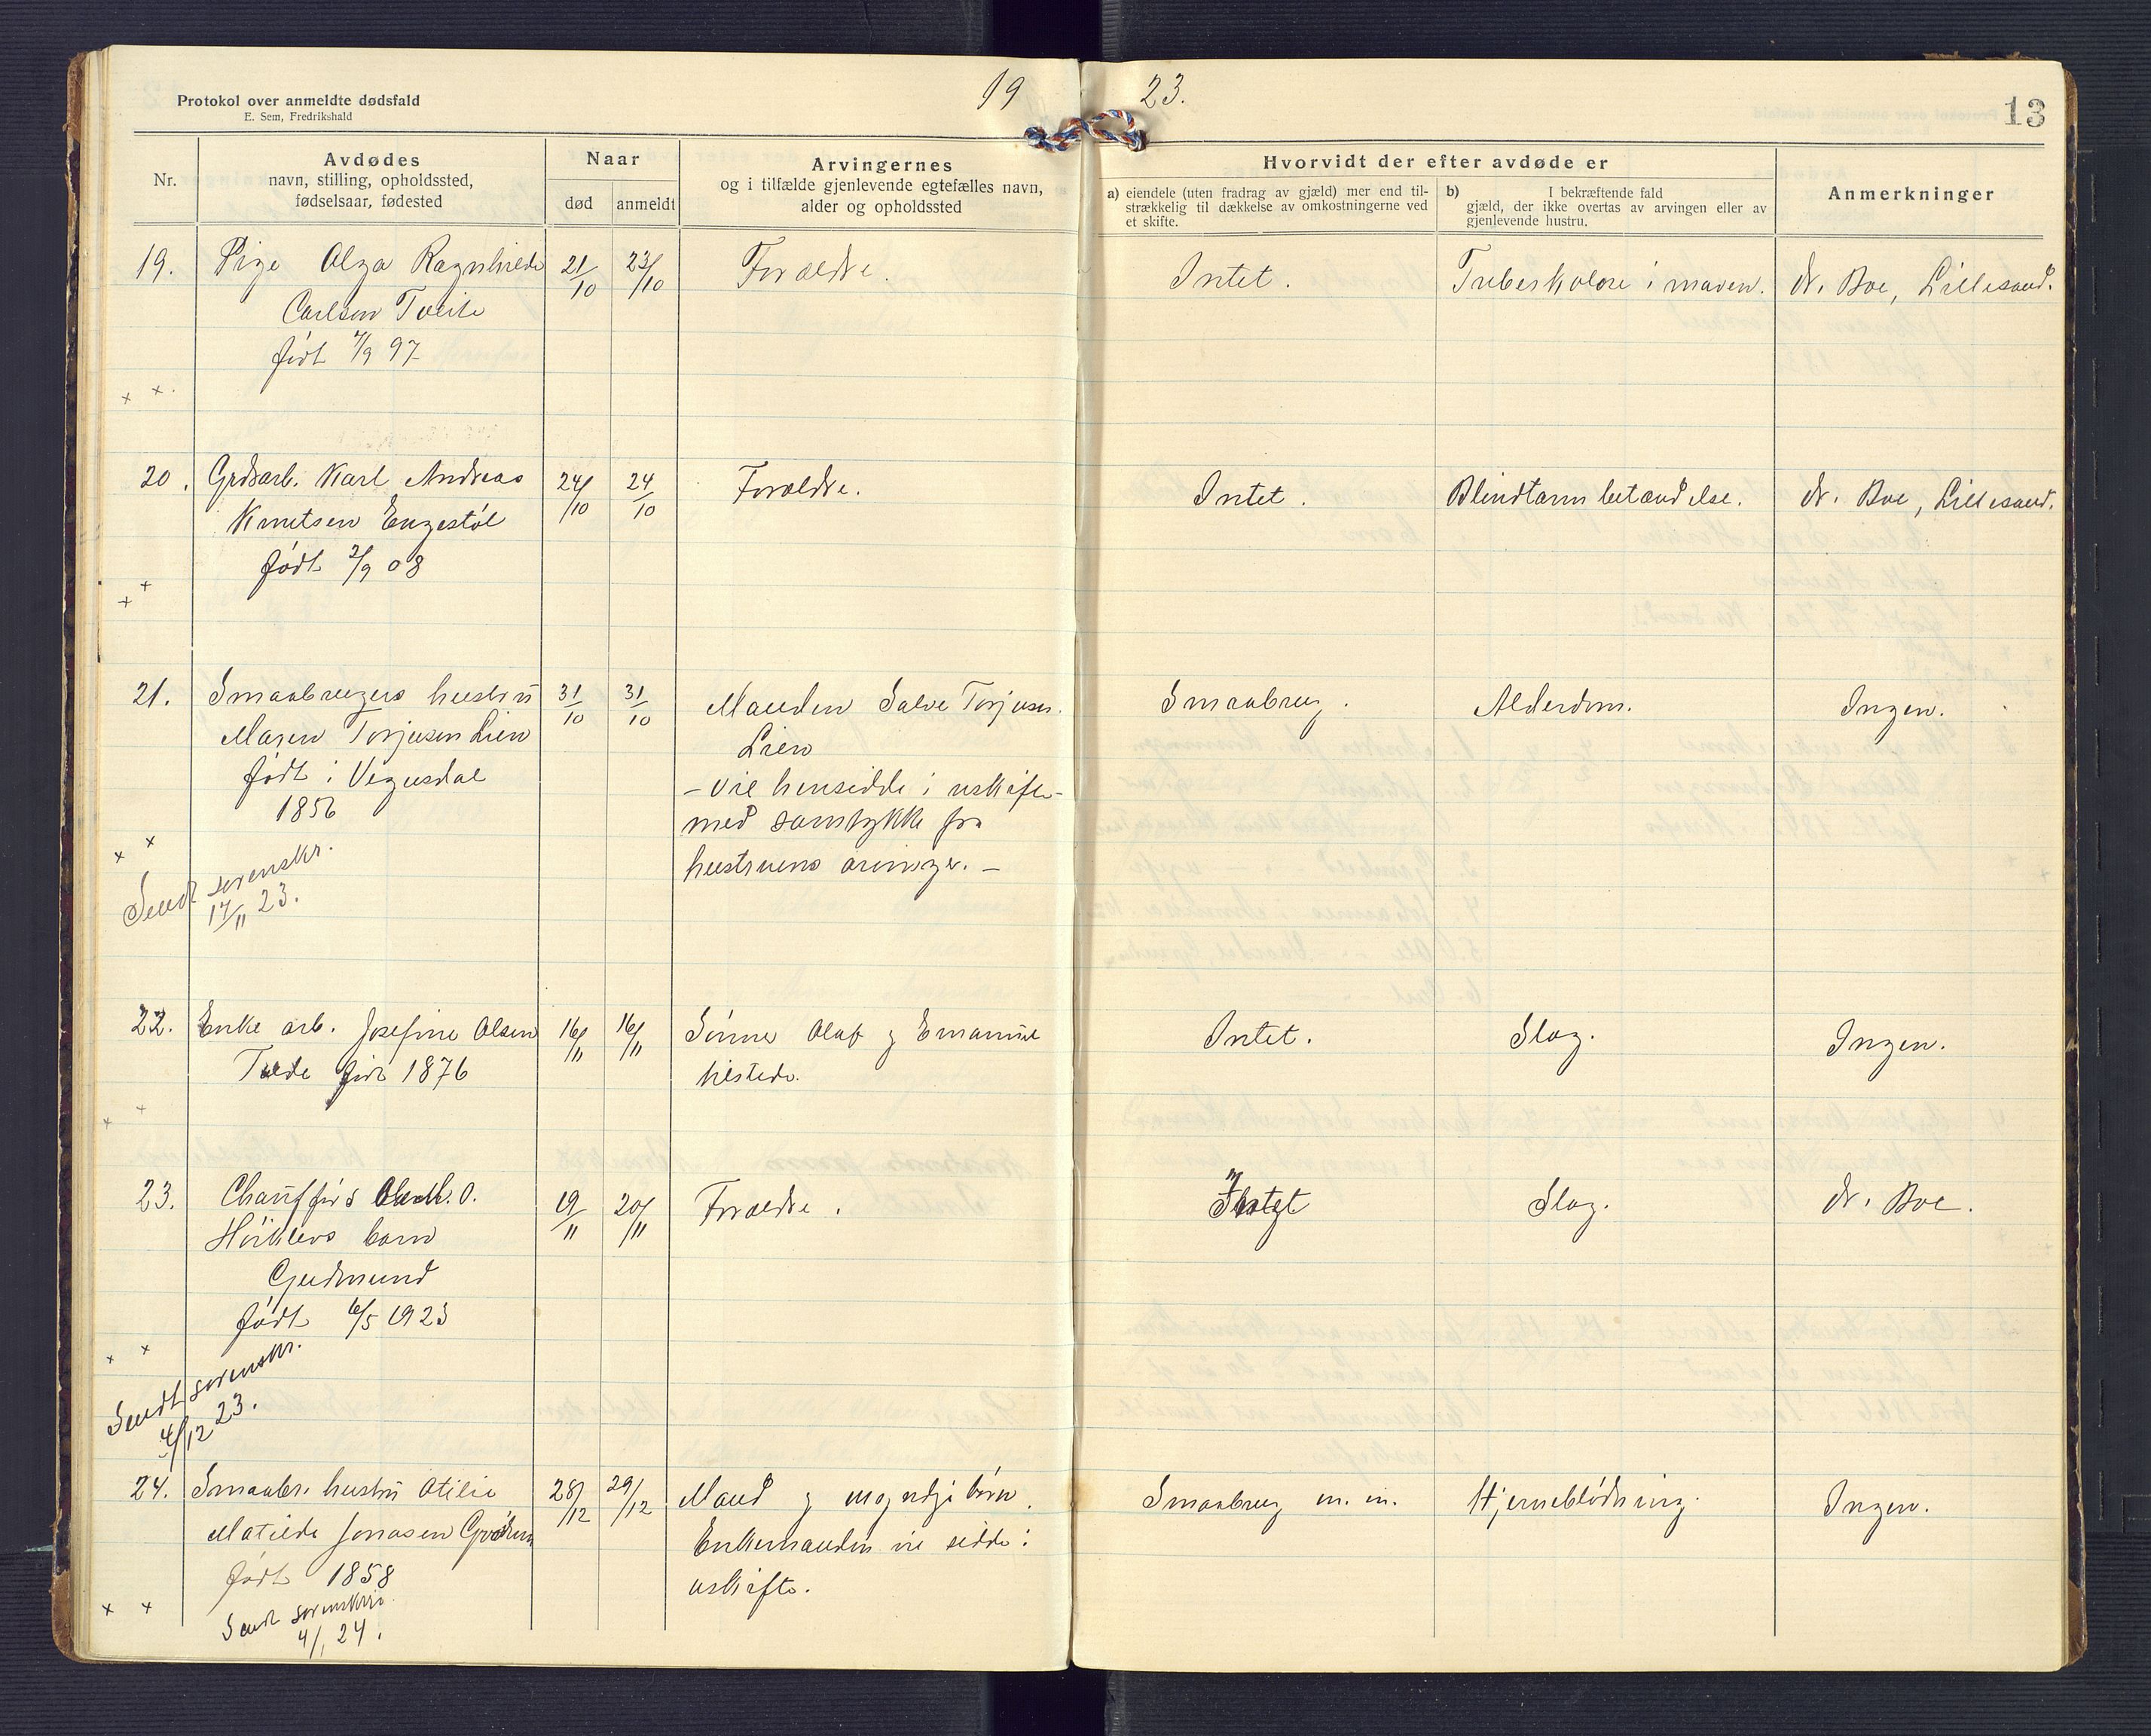 19 23.
13
Protokol over anmeldte dødsfald
E. Sem, Fredrikshald
Nr.
Avdødes
navn, stilling, opholdssted,
fødselsaar, fødested
Naar
død
anmeldt
Arvingernes
og i tilfælde gjenlevende egtefælles navn,
alder og opholdssted
Hvorvidt der efter avdøde er
a) eiendele (uten fradrag av gjæld) mer end til-
strækkelig til dækkelse av omkostningerne ved
et skifte.
b) I bekræftende fald
gjæld, der ikke overtas av arvingen eller av
gjenlevende hustru.
Anmerkninger
19. Pige Olga Ragnhilde 21/10 23/10 Forældre. Intet. Tuberkulose i maven. dr. Boe, Lillesand.
Carlsen Tveite
født 7/9 97
20. Grdsarb. Karl Andreas 24/10 24/10 Forældre. Intet. Blindtarmbetændelse. dr. Boe, Lillesand.
Knutsen Engestöl
født 2/9 08
21. Smaabrugers hustru 31/10 31/10 Manden Salve Torjusen Smaabrug. Alderdom. Ingen.
Maren Torjusen Lien
Lien
født i Vegusdal
1856
- vil hensidde i uskifte -
med samtykke fra
hustruens arvinger. -
Sendt sorenskr.
17/11 23.
22. Enke arb. Josefine Olsen 16/11 16/11 Sönner Olaf g Emanuel Intet. Slag. Ingen.
Tvede född 1876
hilstede.
23. Chaufförs O. 19/11 20/11 Forældre. Intet Slag. dr. Boe.
barn
Gudmund
født 6/5 1923
Sendt sorenskr.
4/12 23.
24. Smaabr. hustru Otilie 28/12 29/12 Mand g myndje börn. Smaabrug m. m. Hjerneblödning. Ingen.
Matilde Jonasen
Enkemanden vil sidde i
født 1858
uskifte.
Sendt sorenskri.
4/1 24.